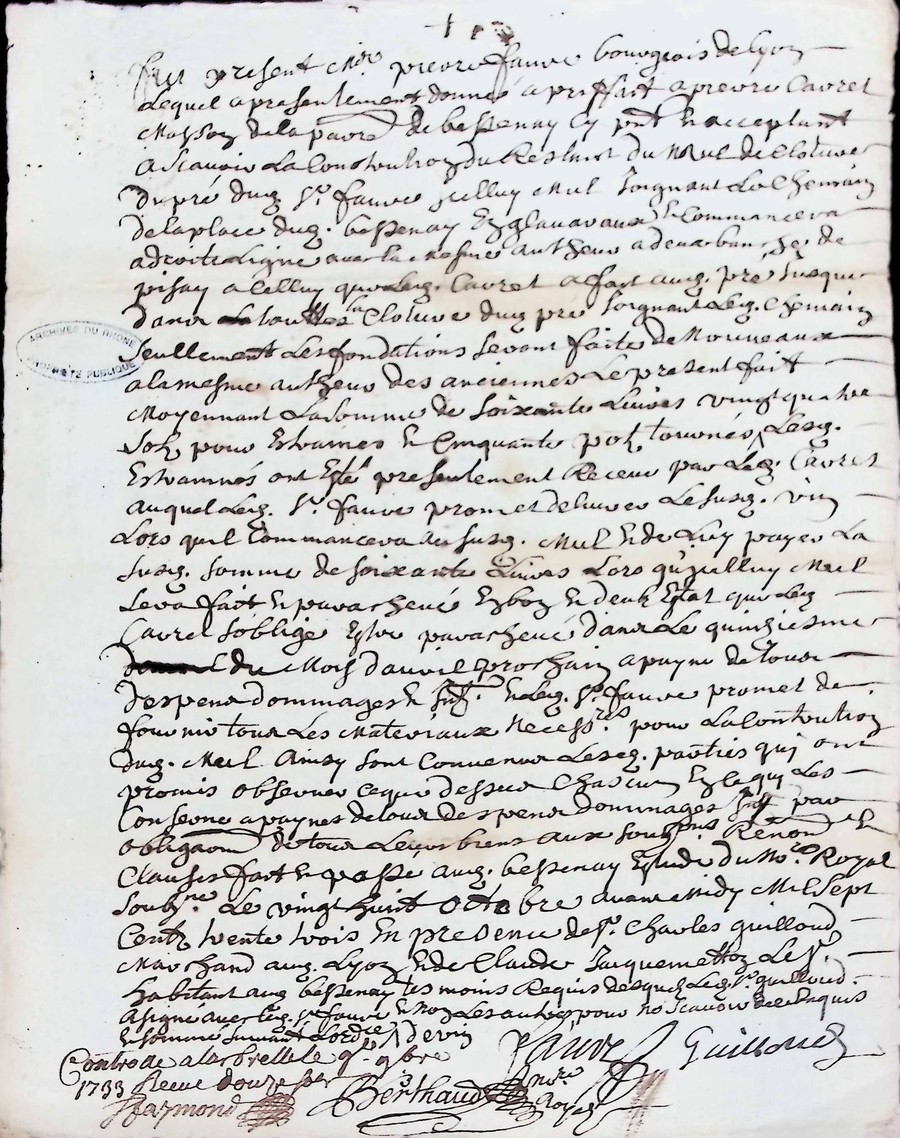 Fut present Mre pierre fauvre bourgeois de Lyon
Lequel a presentement donné a priffait a pierre Cavret
Masson de la parre de bessenay cy pnt et acceptant
ascavoir La Construction du Restant du Mur de Cloture
du pré dud. Sr. fauvre juelluy Mul joignant Le Chemain
de la place dud. bessenay et Commancera
a droite Ligne avec la mesme autheur a deux banches de
pisay a celluy que led. Cavret a fait aud. pré jusque
dans la Cloture dud pré joignant led. Chemain
Seullement Les fondations seront faites de Nouveaux
a la mesme autheur des anciennes Le present fait
Moyennant La somme de soixante Livres vingt quatre
pour Estraines et Cinquante pots Lesd.
Estrainnes ont Esté presentement Receue par Led. Cavret
auquel Led. Sr. fauvre promet delivrer Le susd. vin
Lors quil Commancera Le susd. Mul et de Luy payer La
susd. somme de soixante Livres Lors quicelluy Mul
sera fait et parachevé en bon et deub Estat que led
Cavret soblige Estre parachevé dans Le quinziesme
du Mois davril prochain a payne de tous
despens dommages et Int. et led. Sr. fauvre promet de
fournir tous Les Materiaux Necessres pour La Construction
dud. Mul Ainsy sont Convenus Lesd. parties qui ont
promis observer ce que dessus Chascun en ce qui Les
Conserne a paynes de tous despens dommages Int par
obligaon de tous Leurs biens aux soubmons Renon et
Clauses fait et passé aud. bessenay Estude du Nore. Royal
soubne. Le vingt huit octobre avant Midy Mil sept
Cents trente trois En presence de Sr. Charles guilloud
Marchand aud. Lyon et de Claude Jacquemetton
habitant aud bessenay tesmoins Requis desquels led. Sr. guilloud
a signé avec led. Sr. fauvre et Non Les autres pour ne scavoir de ce Enquis
et sommé suivant Lordre / de vin
Controllé a larbrelle le 9e. 9bre
1733 Receu douze sols
Fauvre Guilloud
Raymond
Berthaud nore
Royal
ARCHIVES DU RHONE
PROPRIÉTÉ PUBLIQUE